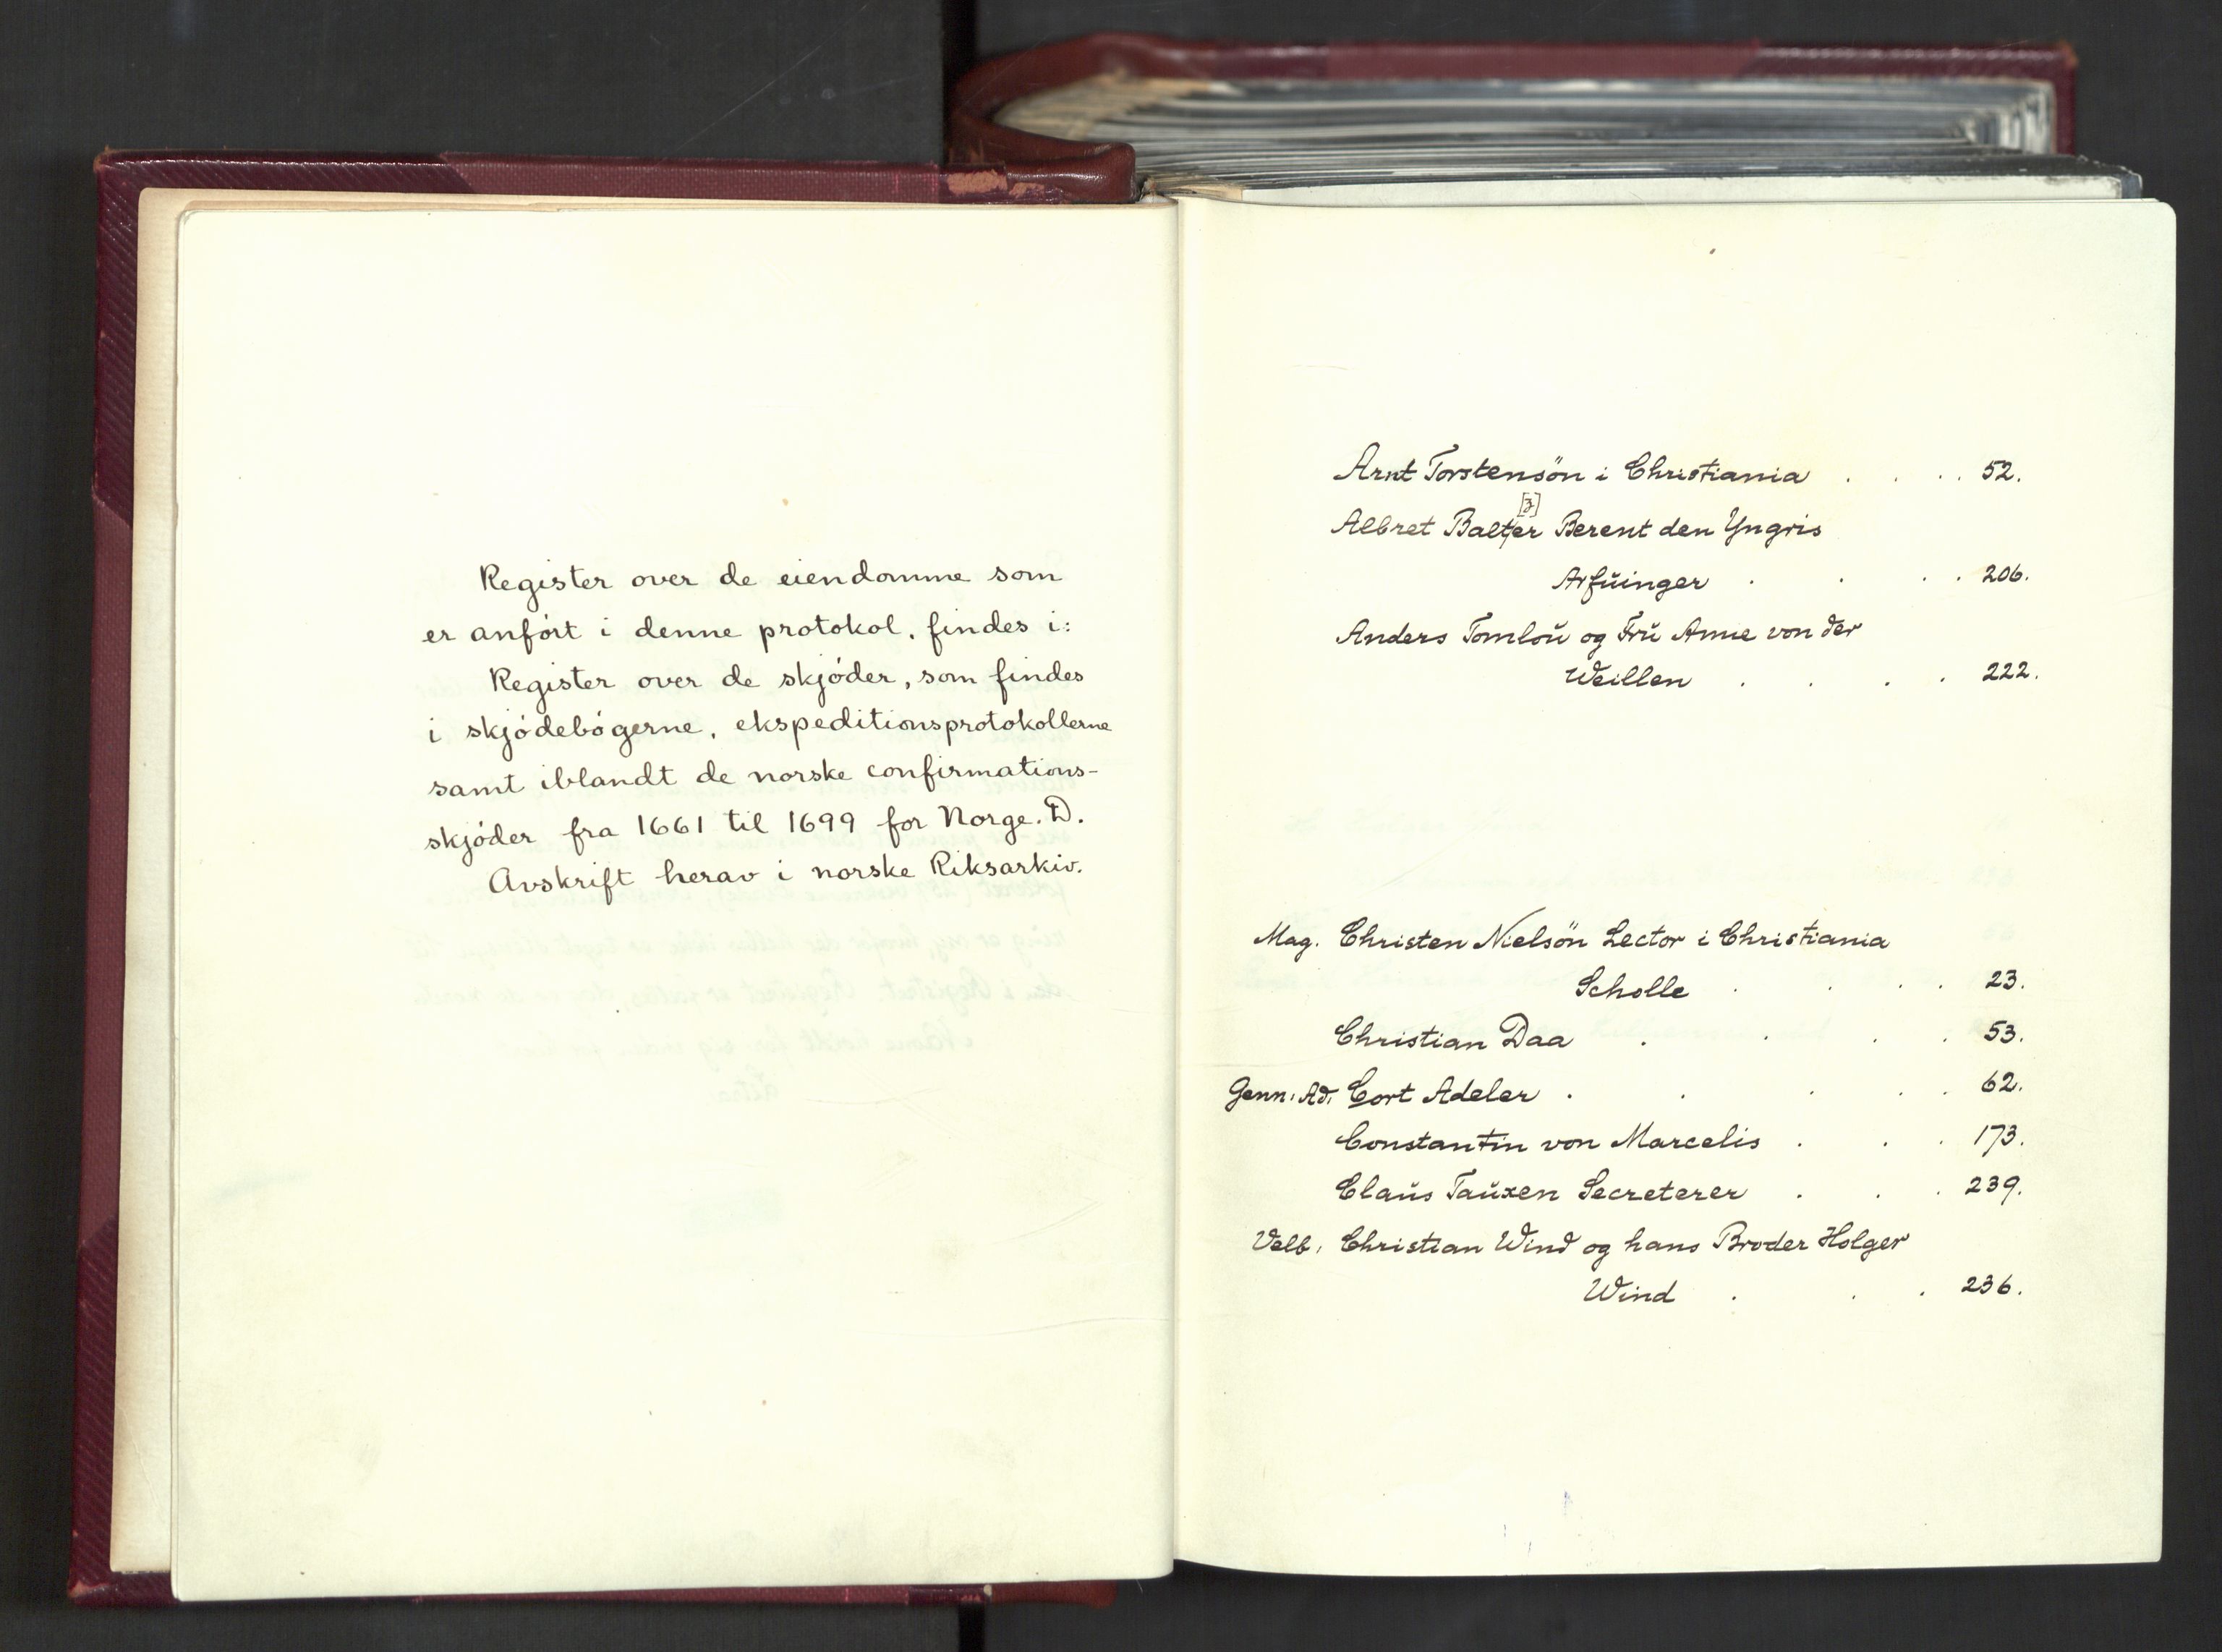 Register over de eiendomme som
er anført i denne protokol, findes i:
Register over de skjøder, som findes
i skjødebøgerne, ekspeditionsprotokollerne
samt iblandt de norske confirmations-
skjøder fra 1661 til 1699 for Norge. D.
Avskrift herav i norske Riksarkiv.
Arnt Torstensön i Christiania . . . . 52.
[z]
Albret Balter Berent den Yngris
Arfŭinger . . . . 206.
Anders Tomloŭ og Frŭ Anne von der
Weillen . . . . 222.
Mag. Christen Nielsön Lector i Christiania
Scholle . . . . 23.
Christian Daa . . . . 53.
Genn. Ad. Cort Adeler . . . . . 62.
Constantin von Marcelis . . . 173.
Claŭs Taŭxen Secreterer . . . 239.
Velb. Christian Wind og hans Broder Holger
Wind . . . 236.